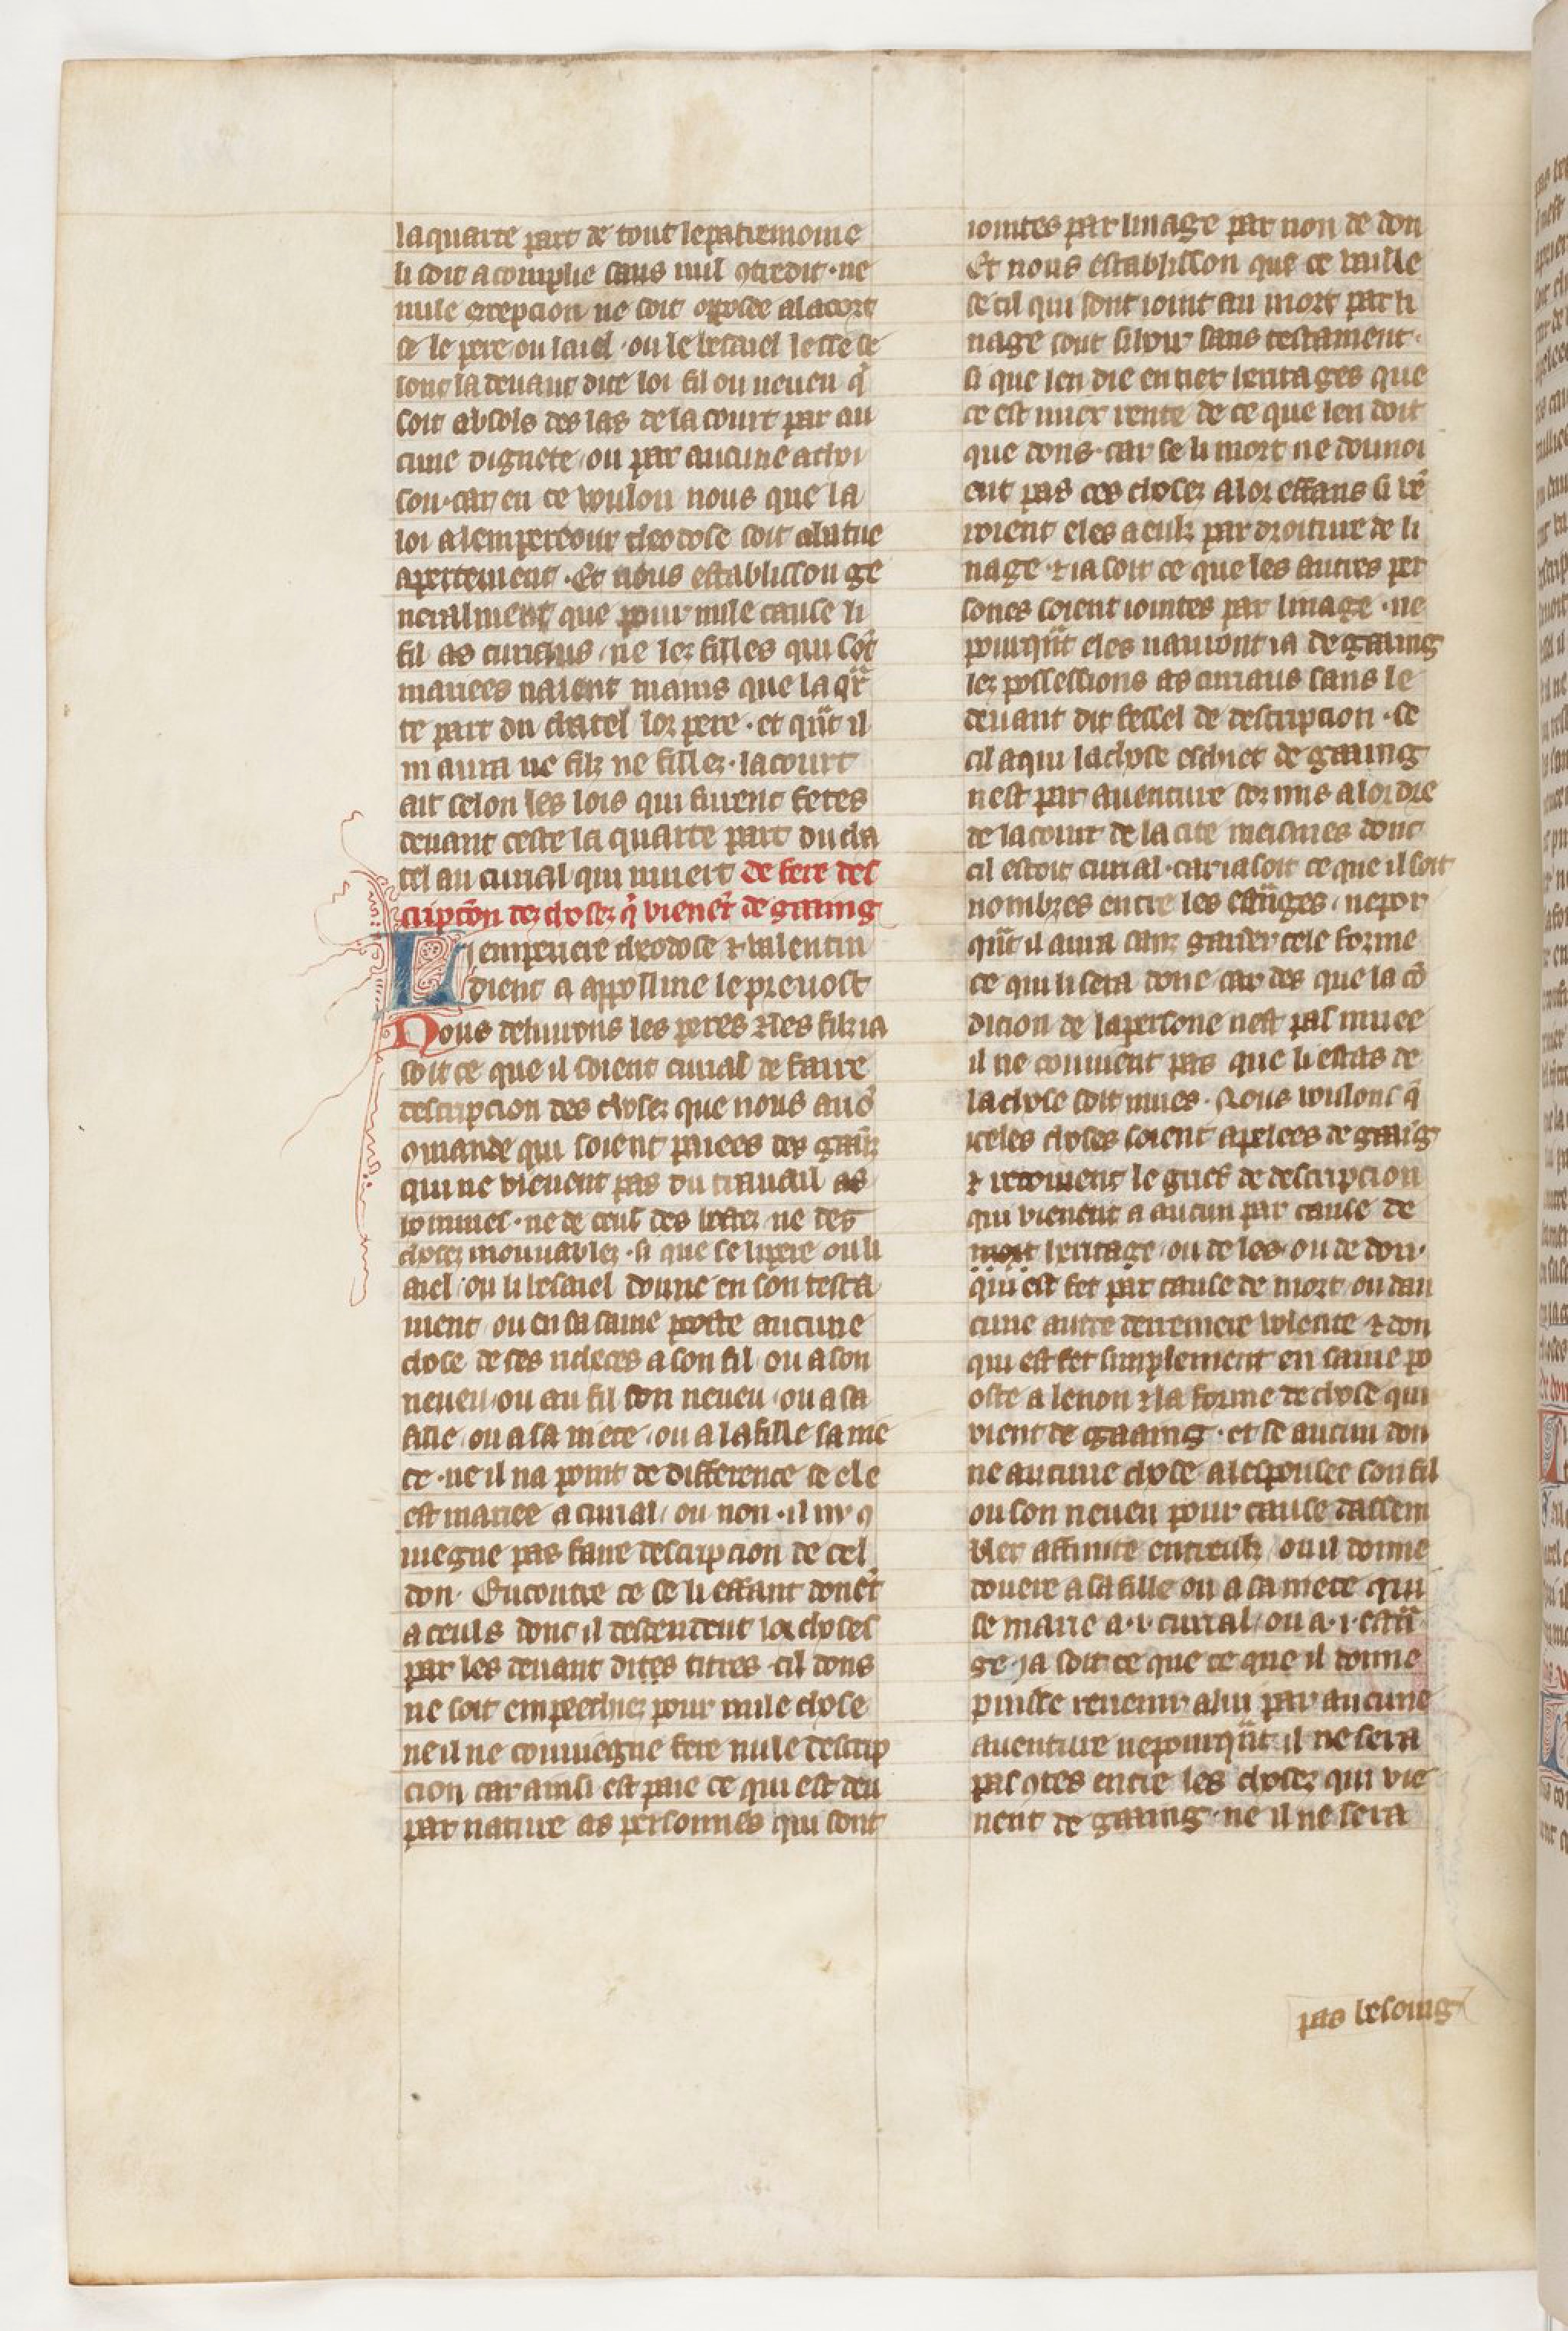 la quarte part de tout le patremoine
li soit acomplie sans nul ꝯtredit · ne
nule excepcion ne soit oposee a la cort
se le pere ou laiel · ou le besaiel lesse se
lonc la deuant dite loi fil ou neueu q̃
soit absols des las de la court par au
cune dignete ou par aucune achoi
son · car en ce voulon nous que la
loi a lempereour theodose soit abatue
apertement · Et nous establisson ge
neralment que pour nule cause li
fil as curiaus ne lez filles qui sõt
mariees naient mains que la qr̃
te part du chatel lor pere · et qñt il
ni aura ne filz ne fillez · la court
ait selon les lois qui furent fetes
deuant ceste la quarte part du cha
tel au curial qui muert de fere des
cripcõn dez chosez q̃ vienẽt de gaaing
Li empereie theodose ⁊ valentin
dient a appolline le preuost
Nous deliurons les peres ⁊ les filz ia
soit ce que il soient curial de faire
descripcion des chosez que nous auõ
ꝯmande qui soient paiees des gaãz
qui ne vienent pas du trauail as
hommes · ne de ceus des bestez ne des
chosez mouuablez · si que se li pere ou li
aiel ou li besaiel donne en son testa
ment ou en sa saine poste aucune
chose de ses richeces a son fil ou a son
neueu ou au fil son neueu ou a sa
fille ou a sa niece ou a la fille sa nie
ce · ne il na point de difference se ele
est mariee a curial ou non · il ny ꝯ
uiegne pas faire descripcion de cel
don · Encontre ce se li effant donẽt
a ceuls dont il descendent lor choses
par les deuant dites titres cil dons
ne soit empeechiez pour nule chose
ne il ne conuiegne fere nule descrip
cion car ainsi est paie ce qui est deu
par nature as personnes qui sont
iointes par linage par non de don
Et nous establisson que ce vaille
se cil qui sont ioint au mort par li
nage sont si hoir sans testament ·
si que len die en tier heritages que
ce est mier rente de ce que len doit
que dons · car se li mort ne donnoi
ent pas ces chosez a lor effans si vẽ
roient eles a eulz par droiture de li
nage · ⁊ ia soit ce que les autres per
sones soient iointes par linage · ne
pourqñt eles nauront ia de gaaing
lez possessions as curiaus sans le
deuant dit fessel de descripcion · se
cil a qui la chose eschiet de gaaing
nest par auenture sormis a lordre
de la court de la cite meismes dont
cil estoit curial · car ia soit ce que il soit
nombres entre les estr̃ãges · nepor
qñt il aura sanz garder cele forme
ce qui li sera done car des que la cõ
dicion de la persone nest pas muee
il ne conuient pas que li estas de
la chose soit mues · Nous voulons q̃
iceles choses soient apelees de gaaĩg
⁊ retoingnent le gries de descripcion
qui vienent a aucun par cause de
mort heritage ou de les ou de don ·
qui est fet par cause de mort ou dau
cune autre derreniere volente ⁊ don
qui est fet simplement en saine po
oste a le non ⁊ la forme de chose qui
vient de gaaing · et se aucun don
ne aucune chose a lespousee son fil
ou son neueu pour cause dassem
bler affinite entreulz ou il donne
douere a sa fille ou a sa niece qui
se marie a · i · curial ou a · i · estrã
ge ja soit ce que ce que il donne
puisse reuenir a lui par aucune
auenture nepourqñt il ne sera
pas ꝯtes entre les chosez qui vie
nent de gaaing · ne il ne sera
pas besoing